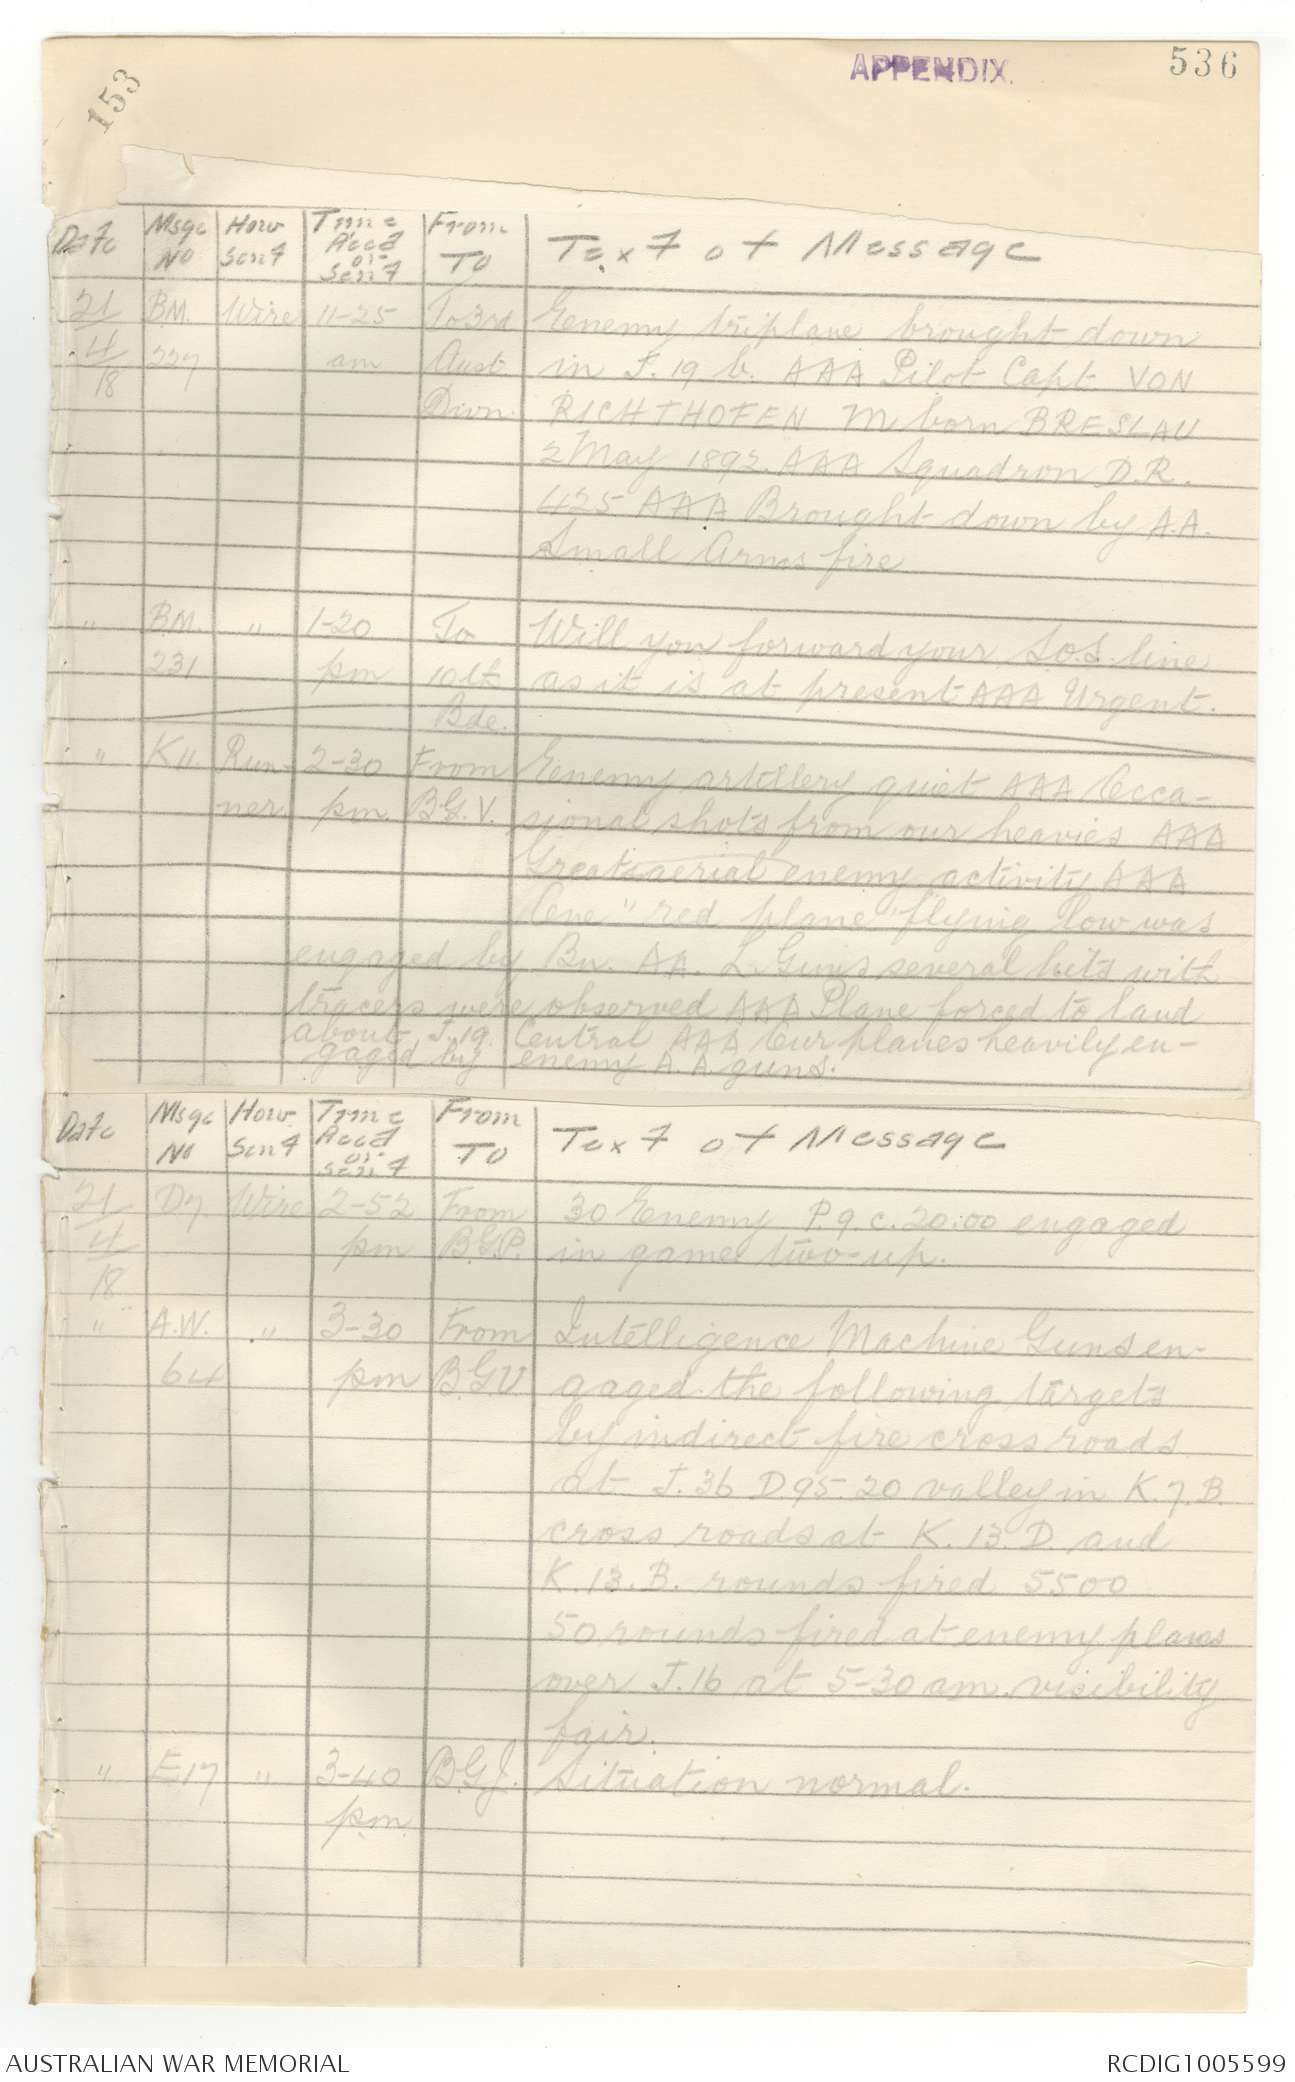 153
APPENDIX.
536
Date | Msge No | How Sent | Time Recd or Sent | From To | Text of Message
21/4/18 | B.M. 227 | Wire | 11-25 am | To 3rd Aust. Divn. | Enemy triplane brought down
in J. 19 b. AAA Pilot Capt VON
RICHTHOFEN M born BRESLAU
2 May 1892. AAA Squadron D.R.
425 AAA Brought down by A.A.
Small Arms fire
" | B.M. 231 | " | 1-20 pm | To 10th Bde. | Will you forward your S.O.S. line
as it is at present AAA Urgent.
" | K11. | Runner. | 2-30 pm. | From B.G.V. | Enemy artillery quiet AAA Occa-
sional shots from our heavies AAA
Great aerial enemy activity AAA
One "red plane" flying low was
engaged by Bn. AA. L. Guns several hits with
tracers were observed AAA Plane forced to land
about J.19. Central AAA Our planes heavily en-
gaged by enemy A.A. guns.
Date | Msge No | How Sent | Time Recd or Sent | From To | Text of Message
21/4/18 | D7 | Wire | 2-52 pm | From B.G.P. | 30 Enemy P. 9. c. 20.00 engaged
in game two-up.
" | A.W. 64 | " | 3-30 pm | From B.G.V | Intelligence Machine Guns en-
gaged the following targets
by indirect fire cross roads
at J. 36 D. 95-20 valley in K. 7. B.
cross roads at K. 13. D. and
K. 13. B. rounds fired 5500
50 rounds fired at enemy planes
over J. 16 at 5-30 am. visibility
fair.
" | E17 | " | 3-40 pm | B.G.J. | Situation normal.
AUSTRALIAN WAR MEMORIAL
RCDIG1005599